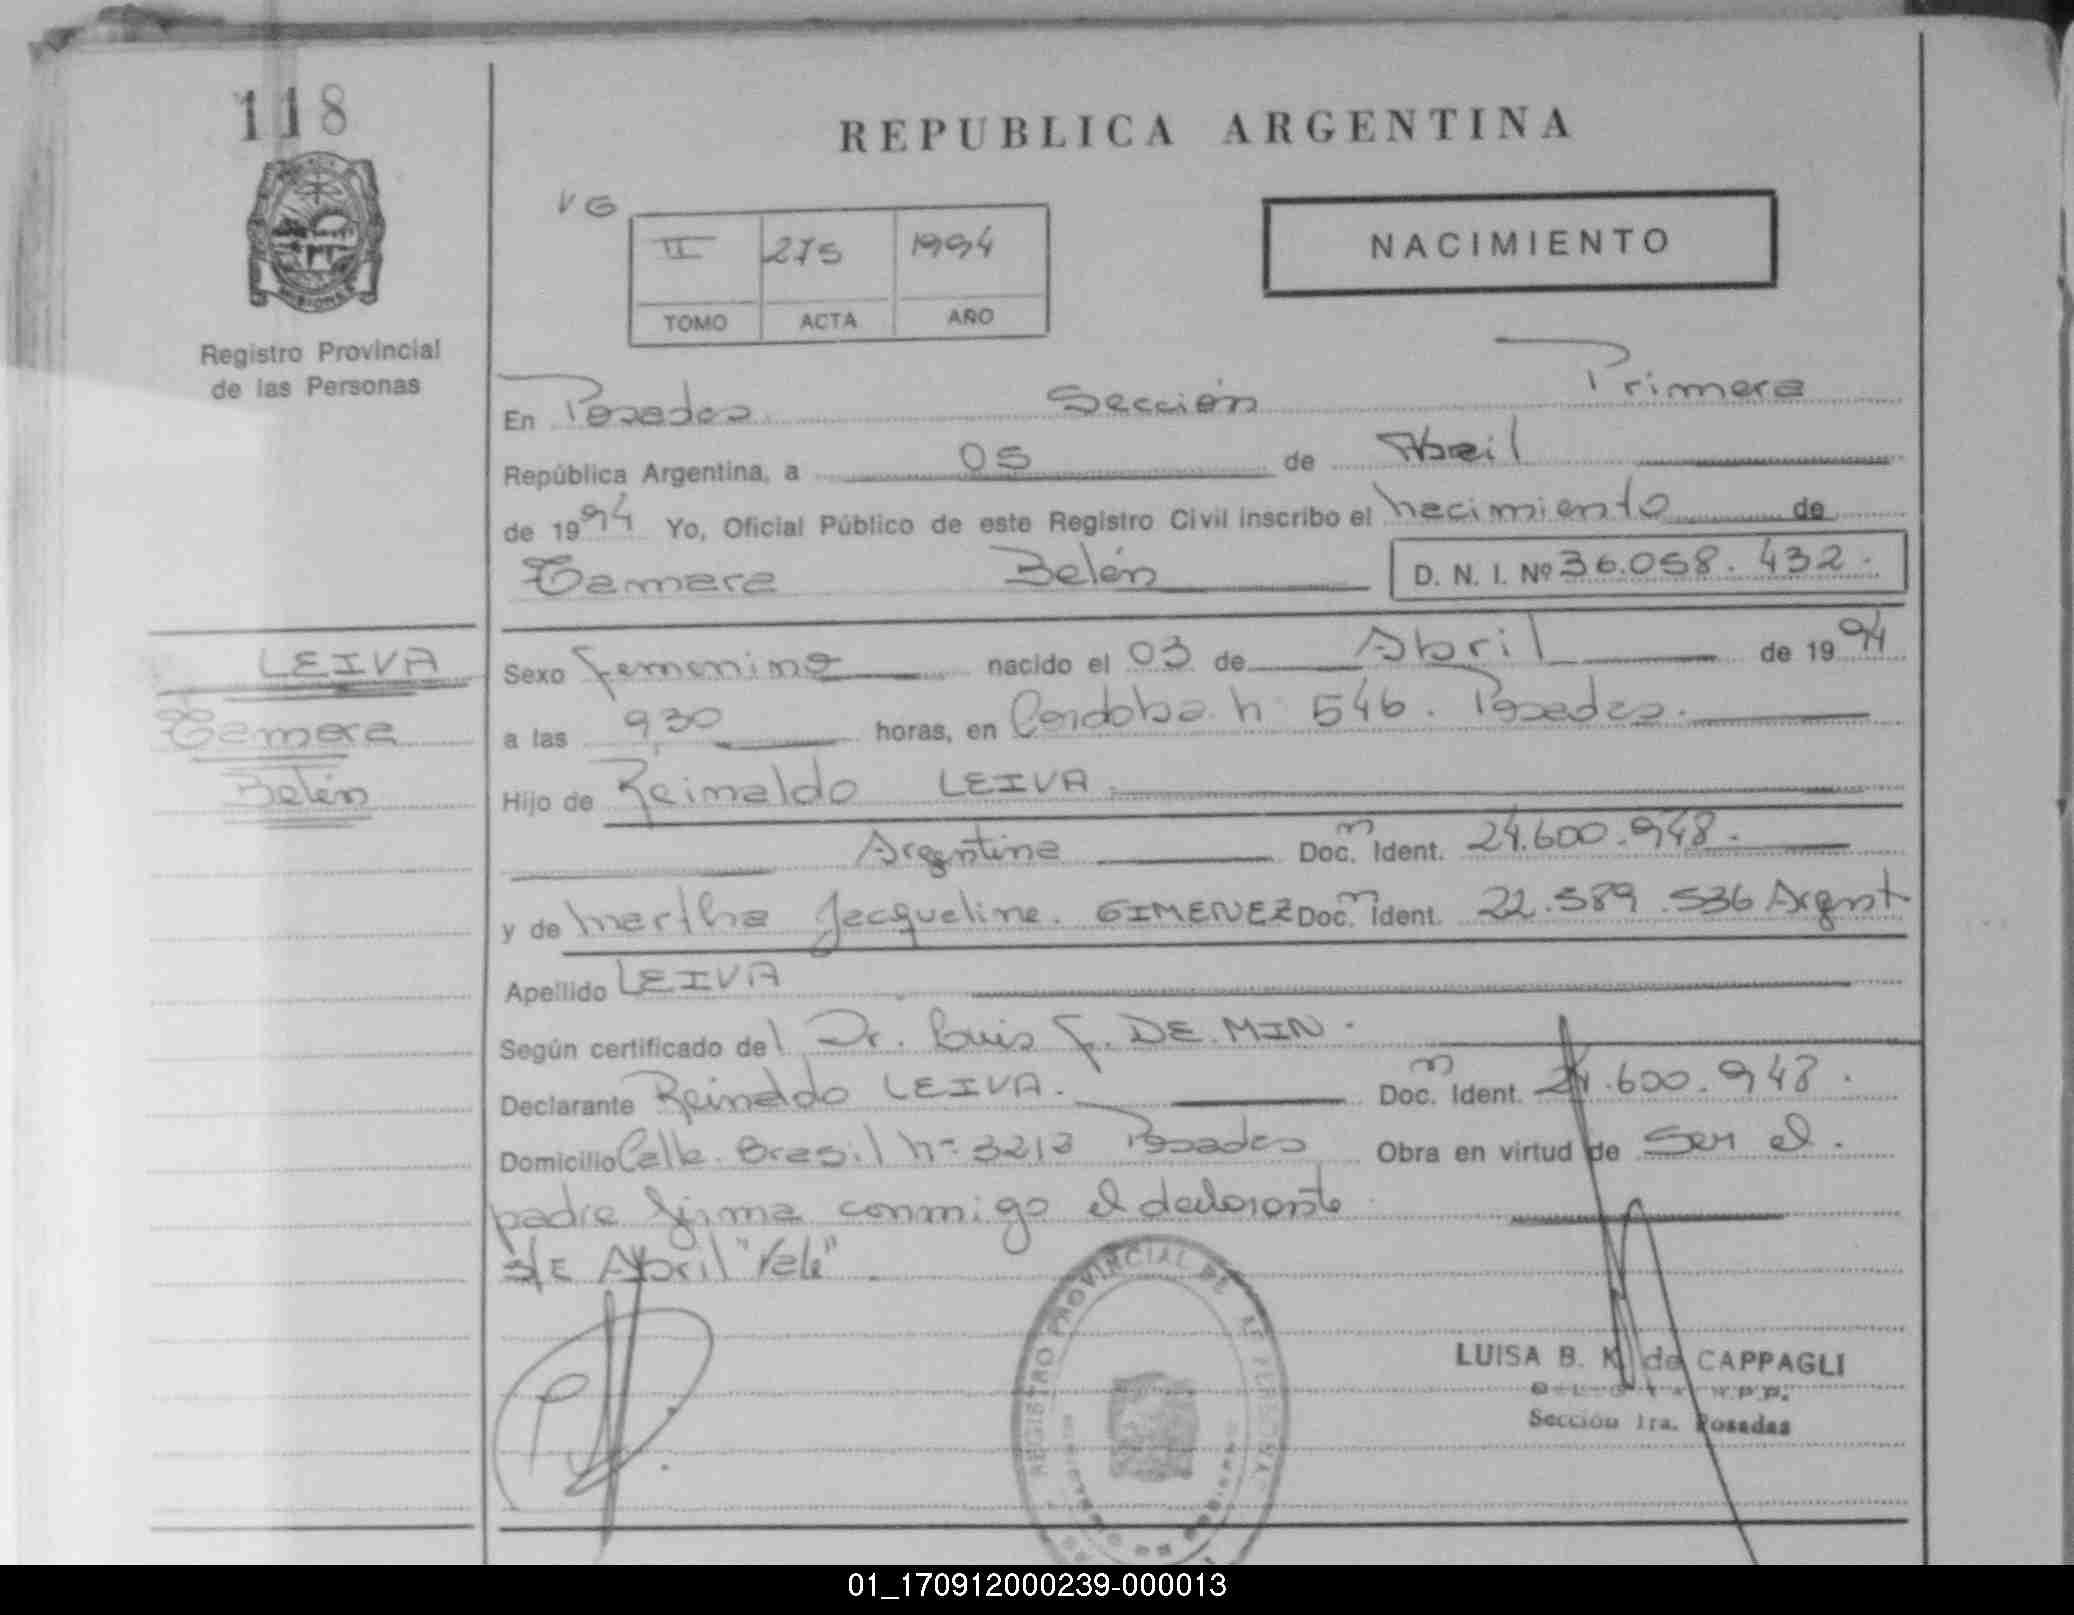 118
REPUBLICA ARGENTINA
VG
II 275 1994
TOMO ACTA AÑO
NACIMIENTO
MISIONES
Registro Provincial
de las Personas
En Posadas Sección Primera
República Argentina, a 05 de Abril
de 1994 Yo, Oficial Público de este Registro Civil inscribo el nacimiento de
Tamara Belén D. N. I. Nº 36.058.432.
LEIVA
Tamara
Belén
Sexo femenino nacido el 03 de Abril de 1994
a las 9,30 horas, en Cordoba n 546. Posadas.
Hijo de Reinaldo LEIVA
Argentina Doc. Ident. 24.600.948.
y de Martha Jacqueline. GIMENEZ Doc. Ident. 22.589.536 Argent
Apellido LEIVA
Según certificado del Dr. Luis F. DE MIN.
Declarante Reinaldo LEIVA. Doc. Ident. 24.600.948.
Domicilio Calle Brasil nº 3213 Posadas Obra en virtud de Ser el.
padre firma conmigo el declarante
s/E Abril "Vale"
REGISTRO PROVINCIAL DE
LUISA B. K. de CAPPAGLI
Sección 1ra. Posadas
01_170912000239-000013